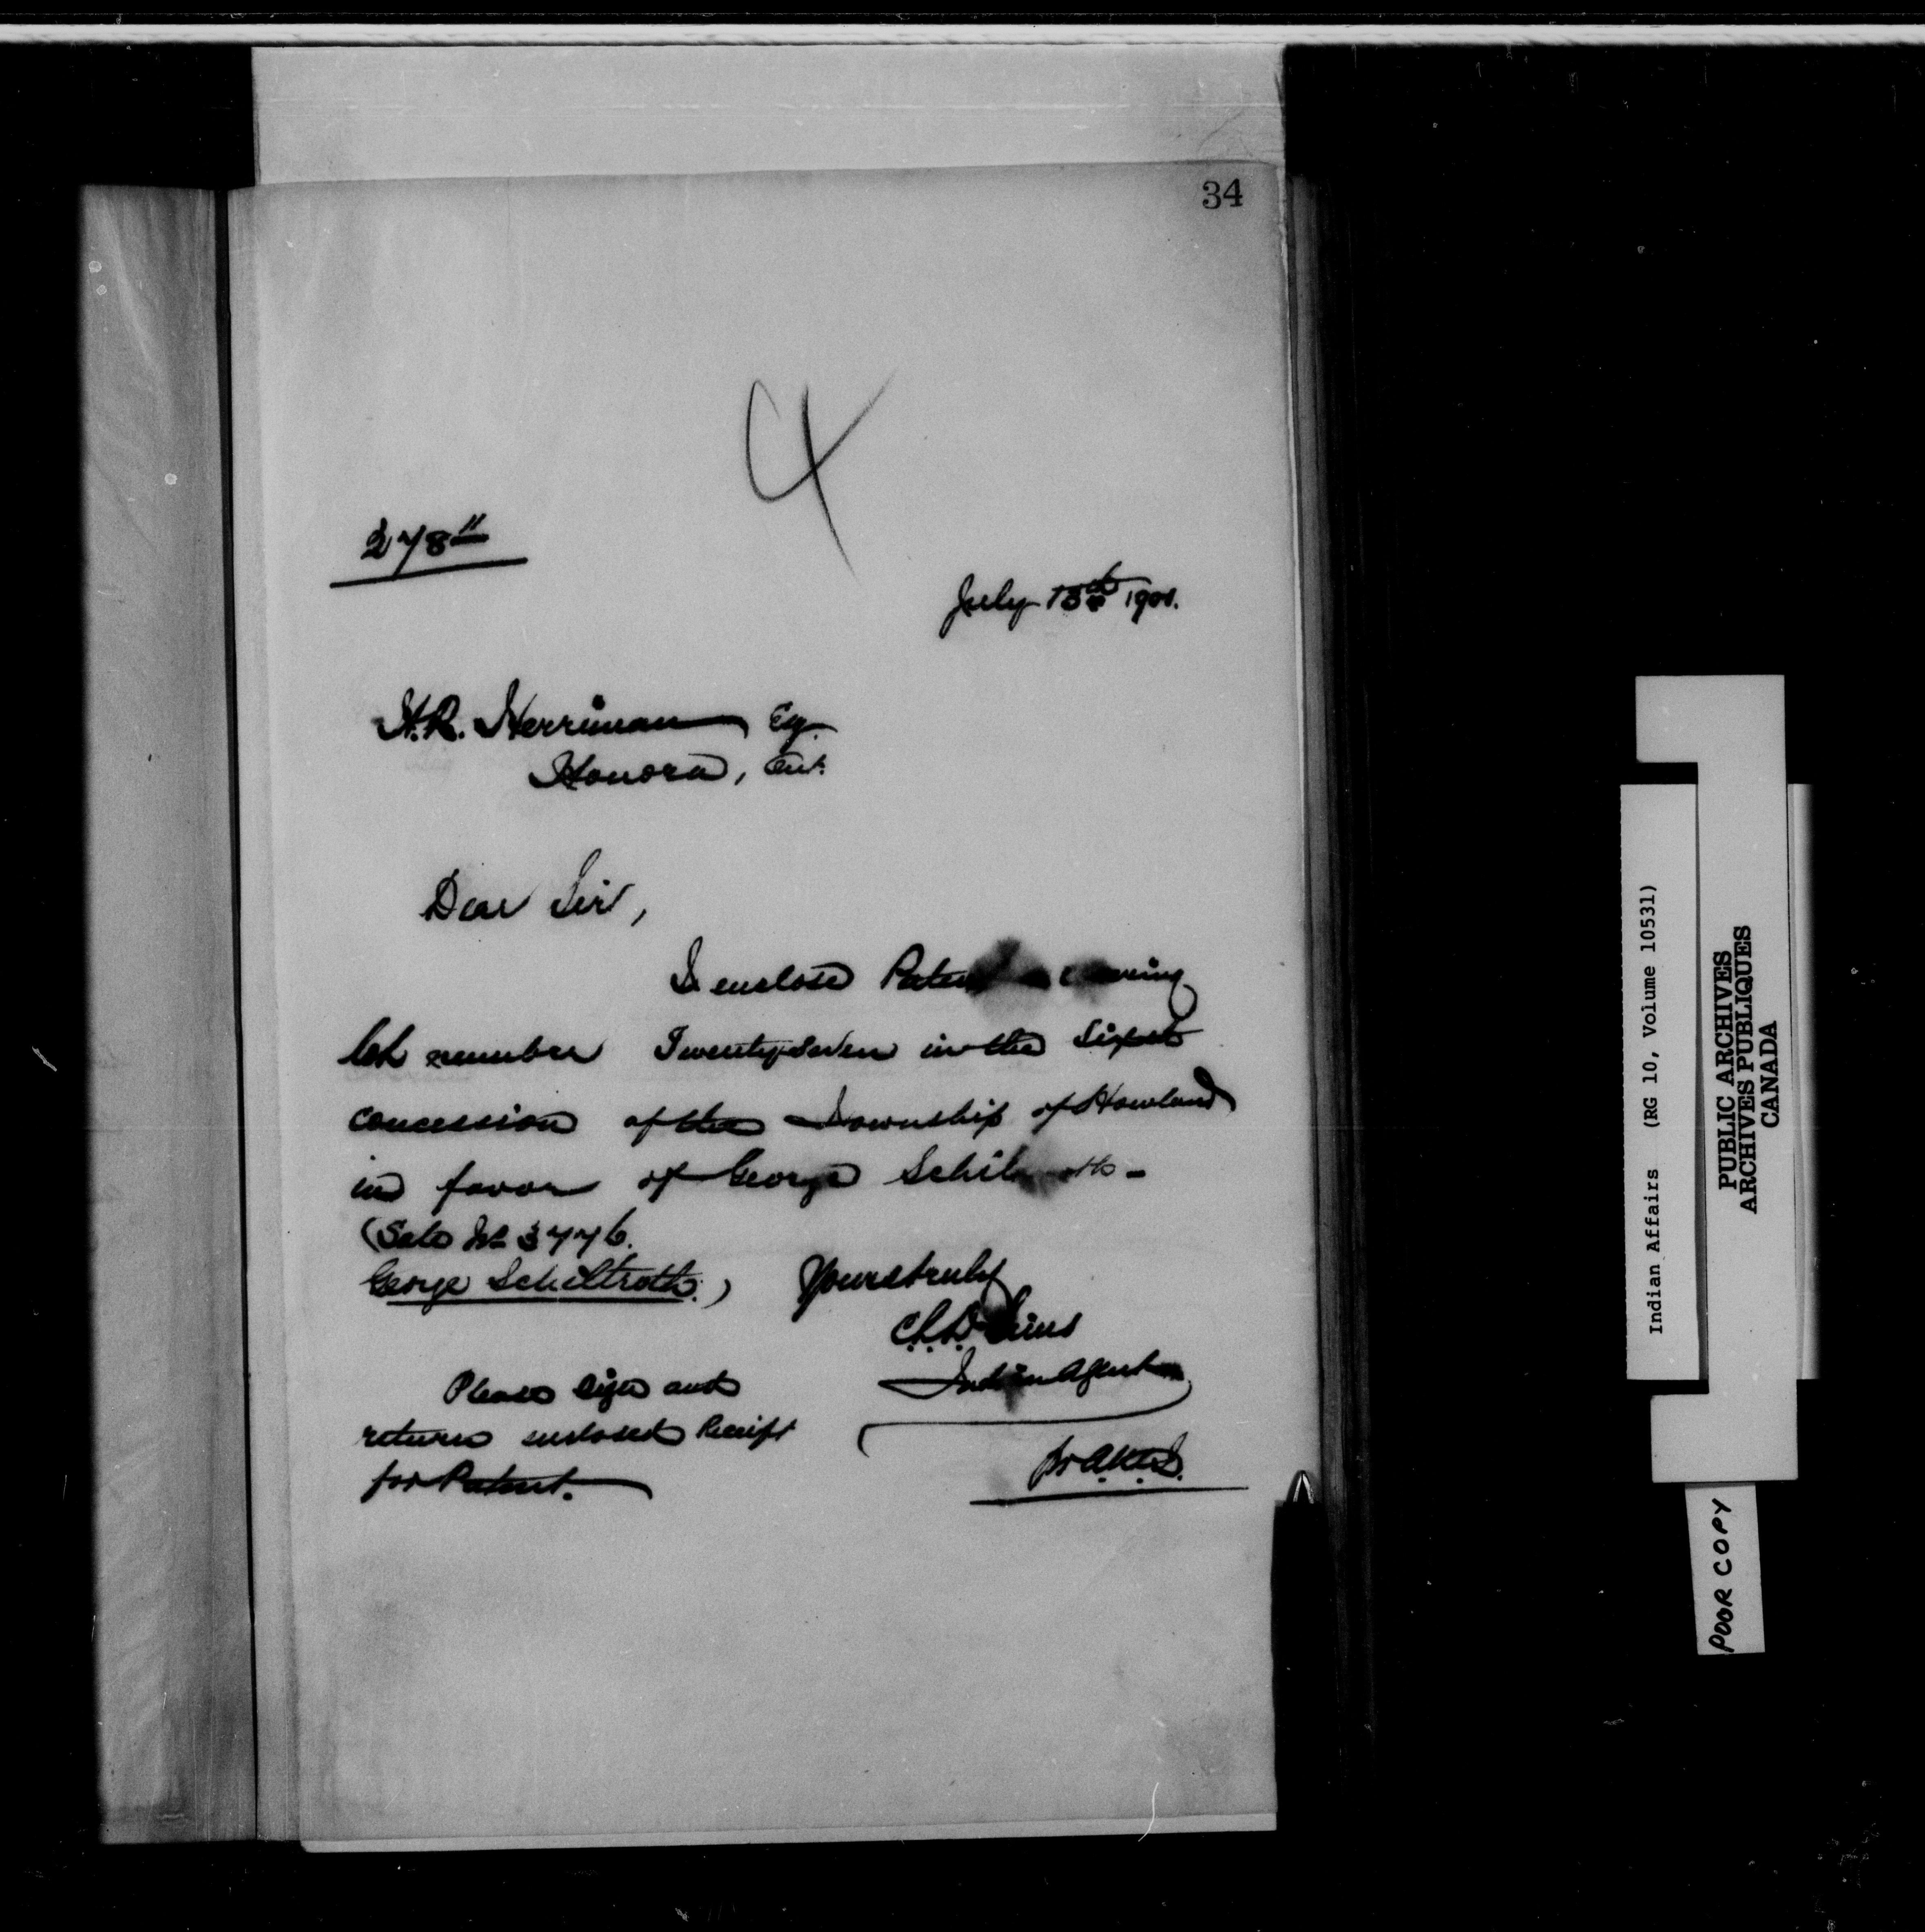 34
4
278"
July 13th 1901.
H.R. Herriman Esq.
Honora, Ont.
Dear Sir,
I enclose Patent covering
lot number Twenty-seven in the Sixth
concession of the Township of Howland
in favor of George Schiltroth -
(Sale No 3776.
George Schiltroth.) Yours truly
C.L.D. Sims
Indian Agent
Please sign and
return enclosed Receipt
for Patent.
Indian Affairs (RG 10, Volume 10531)
PUBLIC ARCHIVES
ARCHIVES PUBLIQUES
CANADA
POOR COPY